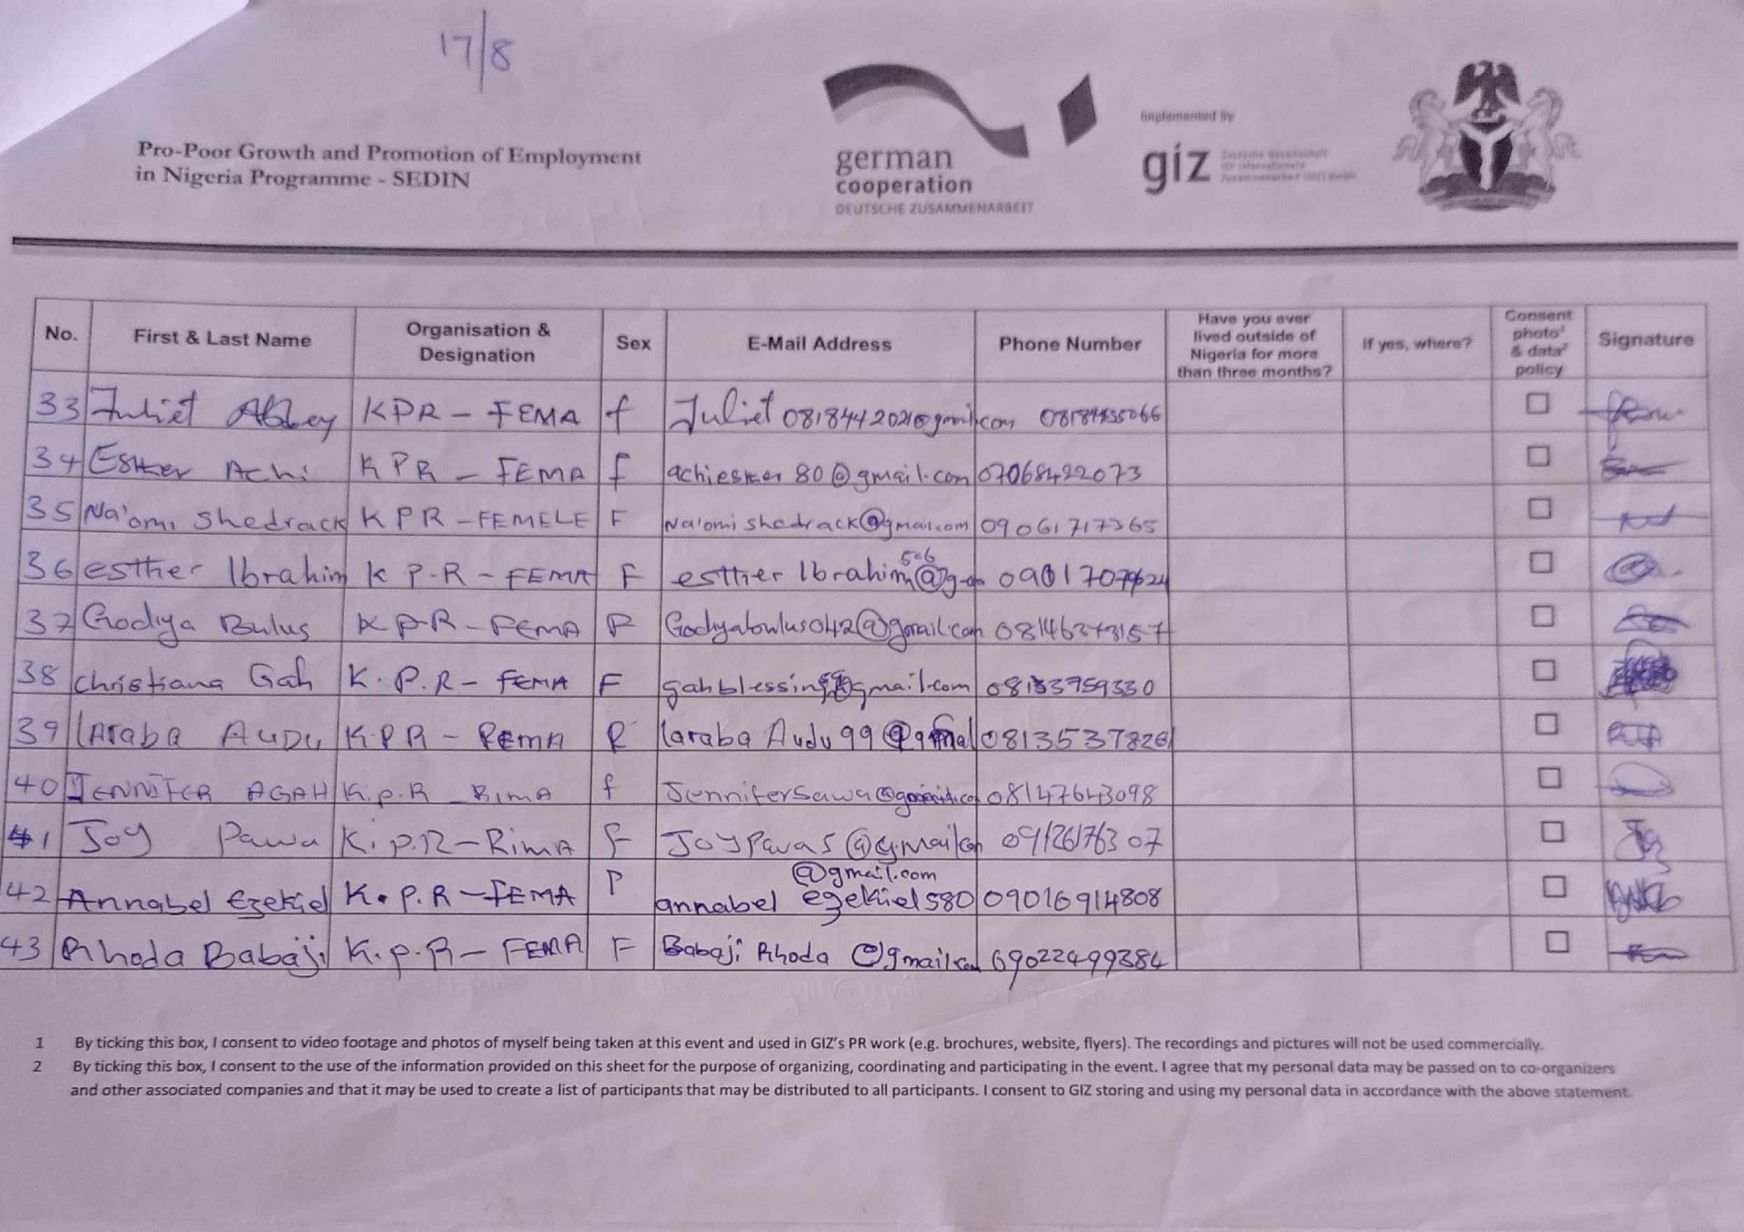 17/8
Pro-Poor Growth and Promotion of Employment
in Nigeria Programme - SEDIN
german
cooperation
DEUTSCHE ZUSAMMENARBEIT
Implemented by
giz
No. First & Last Name Organisation & Designation Sex E-Mail Address Phone Number Have you ever lived outside of Nigeria for more than three months? If yes, where? Consent photo¹ & data² policy Signature
33 Juliet Abbey KPR - FEMA f Juliet0818442021@gmail.com
34 Esther Achi KPR - FEMA f achiesther80@gmail.com 07068422073
35 Na'omi Shedrack KPR - FEMELE F Na'omishedrack@gmail.com 09061717365
36 esther Ibrahim K P.R - FEMA F esther Ibrahim506
37 Godiya Bulus K P.R - FEMA F Godiyabulus042@gmail.com
38 Christiana Gah K.P.R - FEMA F
39 Laraba AUDU K.P.R - FEMA F laraba Audu99 08135378261
40 JENNIFER AGAH K.P.R - RIMA f 08147643098
41 Joy Pawa K.P.R - RimA F 09126176307
42 Annabel Ezekiel K.P.R - FEMA F annabel ezekiel580 @gmail.com 09016914808
43 Rhoda Babaji K.P.R - FEMA F Babaji Rhoda @gmail.com 09022499384
1 By ticking this box, I consent to video footage and photos of myself being taken at this event and used in GIZ's PR work (e.g. brochures, website, flyers). The recordings and pictures will not be used commercially.
2 By ticking this box, I consent to the use of the information provided on this sheet for the purpose of organizing, coordinating and participating in the event. I agree that my personal data may be passed on to co-organizers
and other associated companies and that it may be used to create a list of participants that may be distributed to all participants. I consent to GIZ storing and using my personal data in accordance with the above statement.